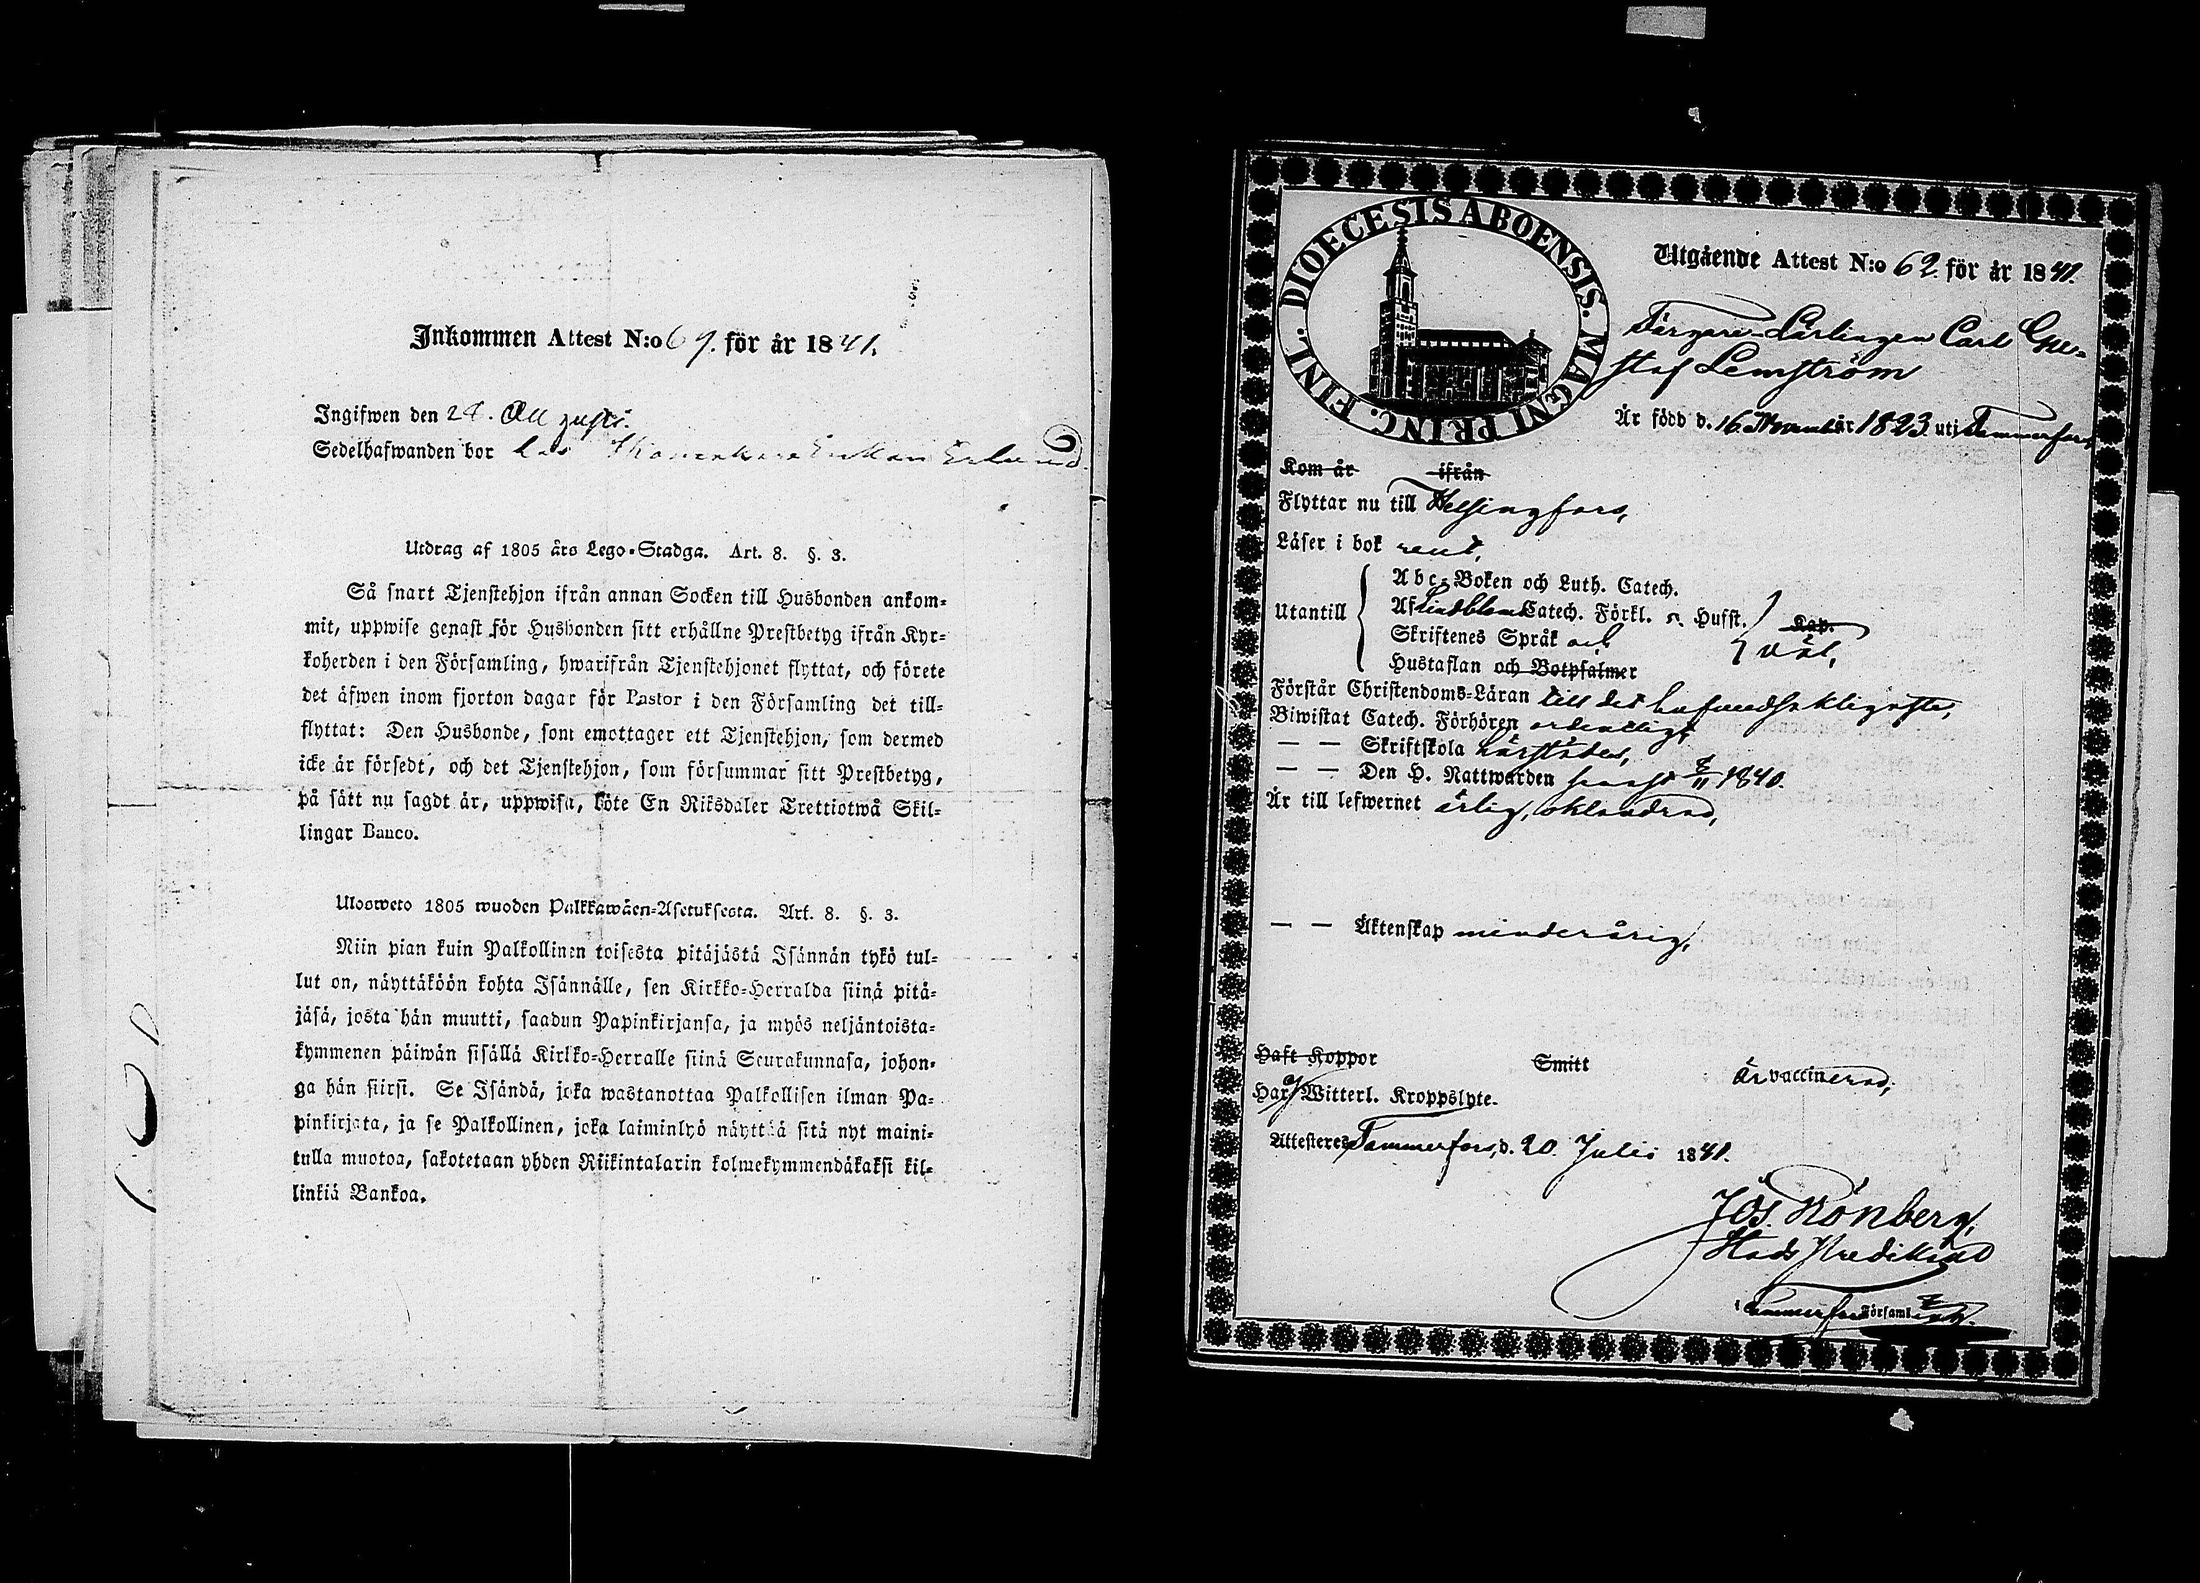 Inkommen Attest N:o 69. för år 1841.
Ingifwen den 28. Augusti.
Sedelhafwanden bor hos Enkan Erlund
Utdrag af 1805 års Lego-Stadga. Art. 8. §. 3.
Så snart Tjenstehjon ifrån annan Socken till Husbonden ankom-
mit, uppwise genast för Husbonden sitt erhållne Prestbetyg ifrån Kyr-
koherden i den Församling, hwarifrån Tjenstehjonet flyttat, och förete
det äfwen inom fjorton dagar för Pastor i den Församling det till-
flyttat: Den Husbonde, som emottager ett Tjenstehjon, som dermed
icke är försedt, och det Tjenstehjon, som försummar sitt Prestbetyg,
på sätt nu sagdt är, uppwisa, böte En Riksdaler Trettiotwå Skil-
lingar Banco.
Ulosweto 1805 wuoden Palkkawäen-Asetuksesta. Art. 8. §. 3.
Niin pian kuin Palkollinen toisesta pitäjästä Isännän tykö tul-
lut on, näyttäköön kohta Isännälle, sen Kirkko-Herralda siinä pitä-
jäsä, josta hän muutti, saadun Papinkirjansa, ja myös neljäntoista-
kymmenen päiwän sisällä Kirkko-Herralle siinä Seurakunnasa, johon-
ga hän siirsi. Se Isändä, joka wastanottaa Palkollisen ilman Pa-
pinkirjata, ja se Palkollinen, joka laiminlyö näyttää sitä nyt maini-
tulla muotoa, sakotetaan yhden Riikintalarin kolmekymmendäkaksi kil-
linkiä Bankoa.
DIOECESIS ABOENSIS. MAGNI PRINC. FINL.
Utgående Attest N:o 62. för år 1841.
Färgare Lärlingen Carl Gu-
staf Lemström
Är född d. 16 November år 1823. uti Tammerfors,
Kom år ifrån
Flyttar nu till Helsingfors,
Läser i bok rent,
Abc-Boken och Luth. Catech.
Utantill Af Lindbloms Catech. Förkl. o. Husst. Kap.
Skriftenes Språk och väl,
Hustaflan och Botpsalmer
Förstår Christendoms-Läran till det hufvudsakligaste,
Biwistat Catech. Förhören ordentligt,
— — Skriftskola härstädes,
— — Den H. Nattwarden senast 8/11 1840.
Är till lefwernet ärlig, oklandrad,
— — Äktenskap minderårig,
Haft Koppor Smitt är vaccinerad,
Har ej Witterl. Kroppslyte.
Attesteres Tammerfors, d. 20. Julii 1841.
Jos. Rönberg,
Stads Predikant
Tammerfors Församl.